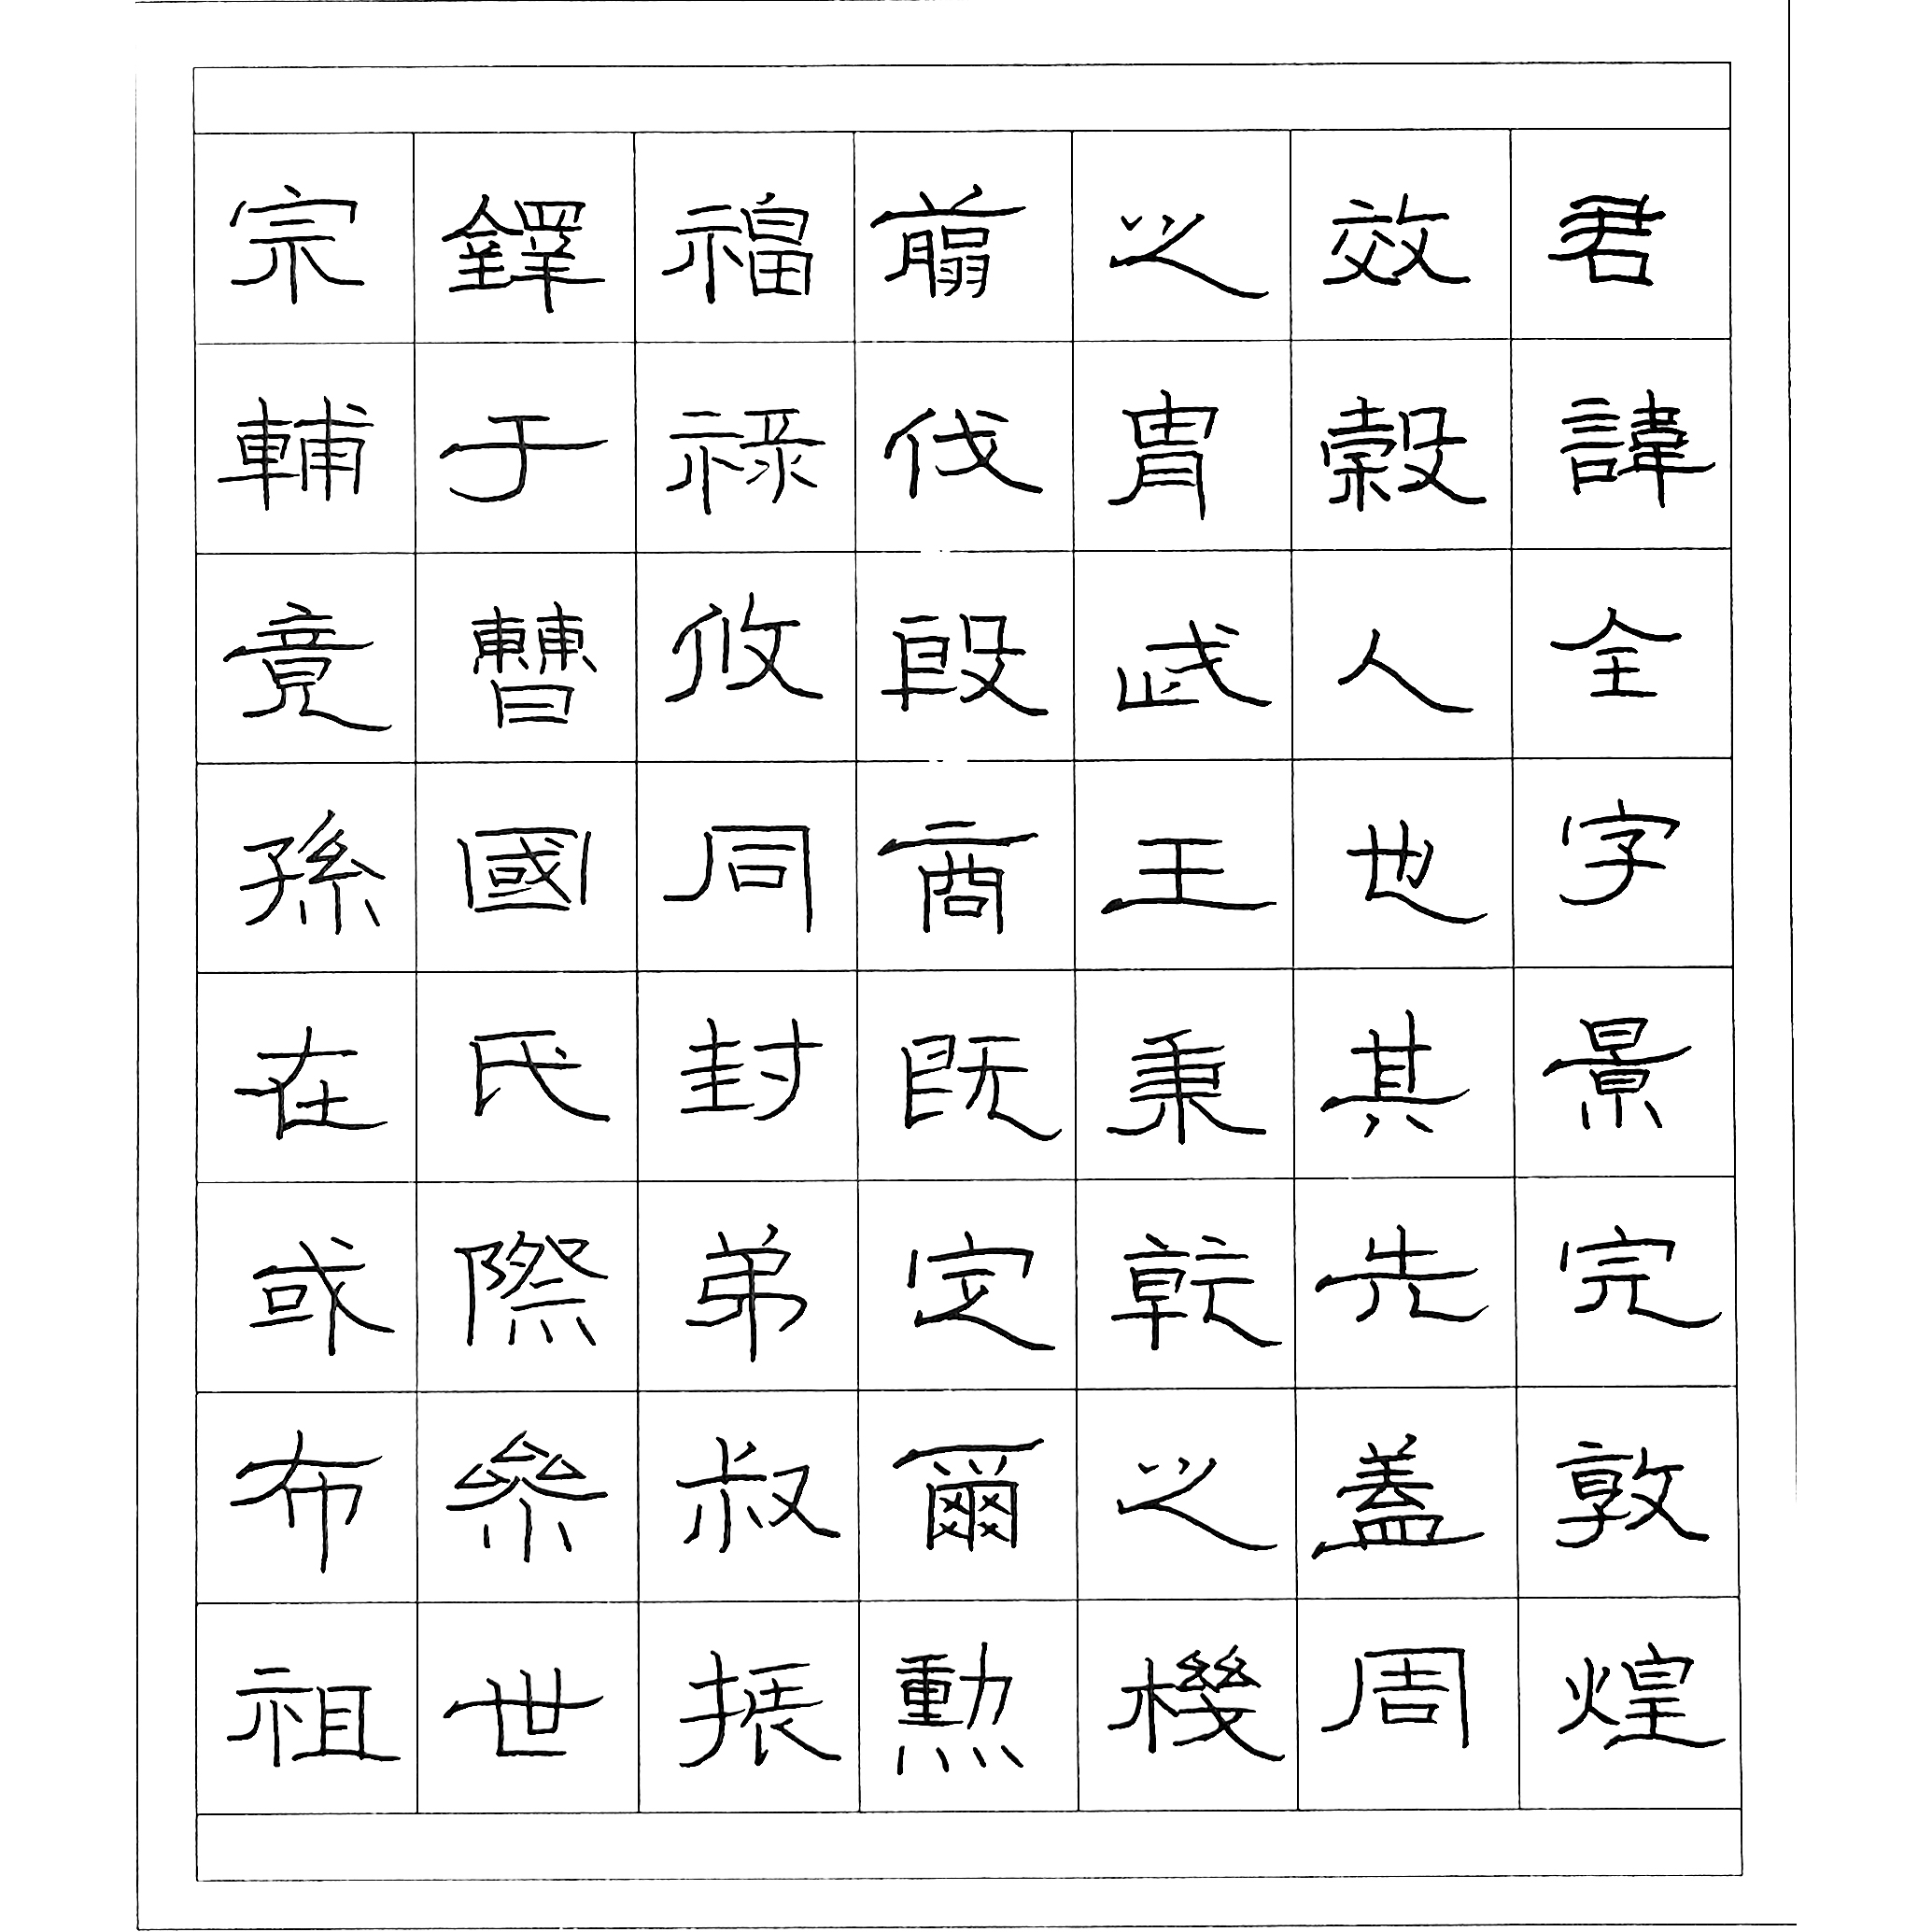 君諱全字景完敦煌
效穀人也其先蓋周
之胄武王秉乾之機
翦伐殷商既定爾勳
福祿攸同封弟叔振
鐸于曹國氏際絫世
宗輔竟孫在或布祖